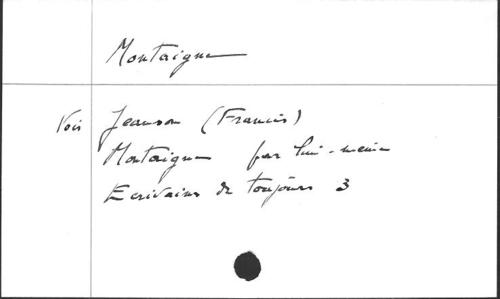 Montaigne
Voir Jeanson (Francis)
Montaigne par lui-même
Ecrivains de toujours 3